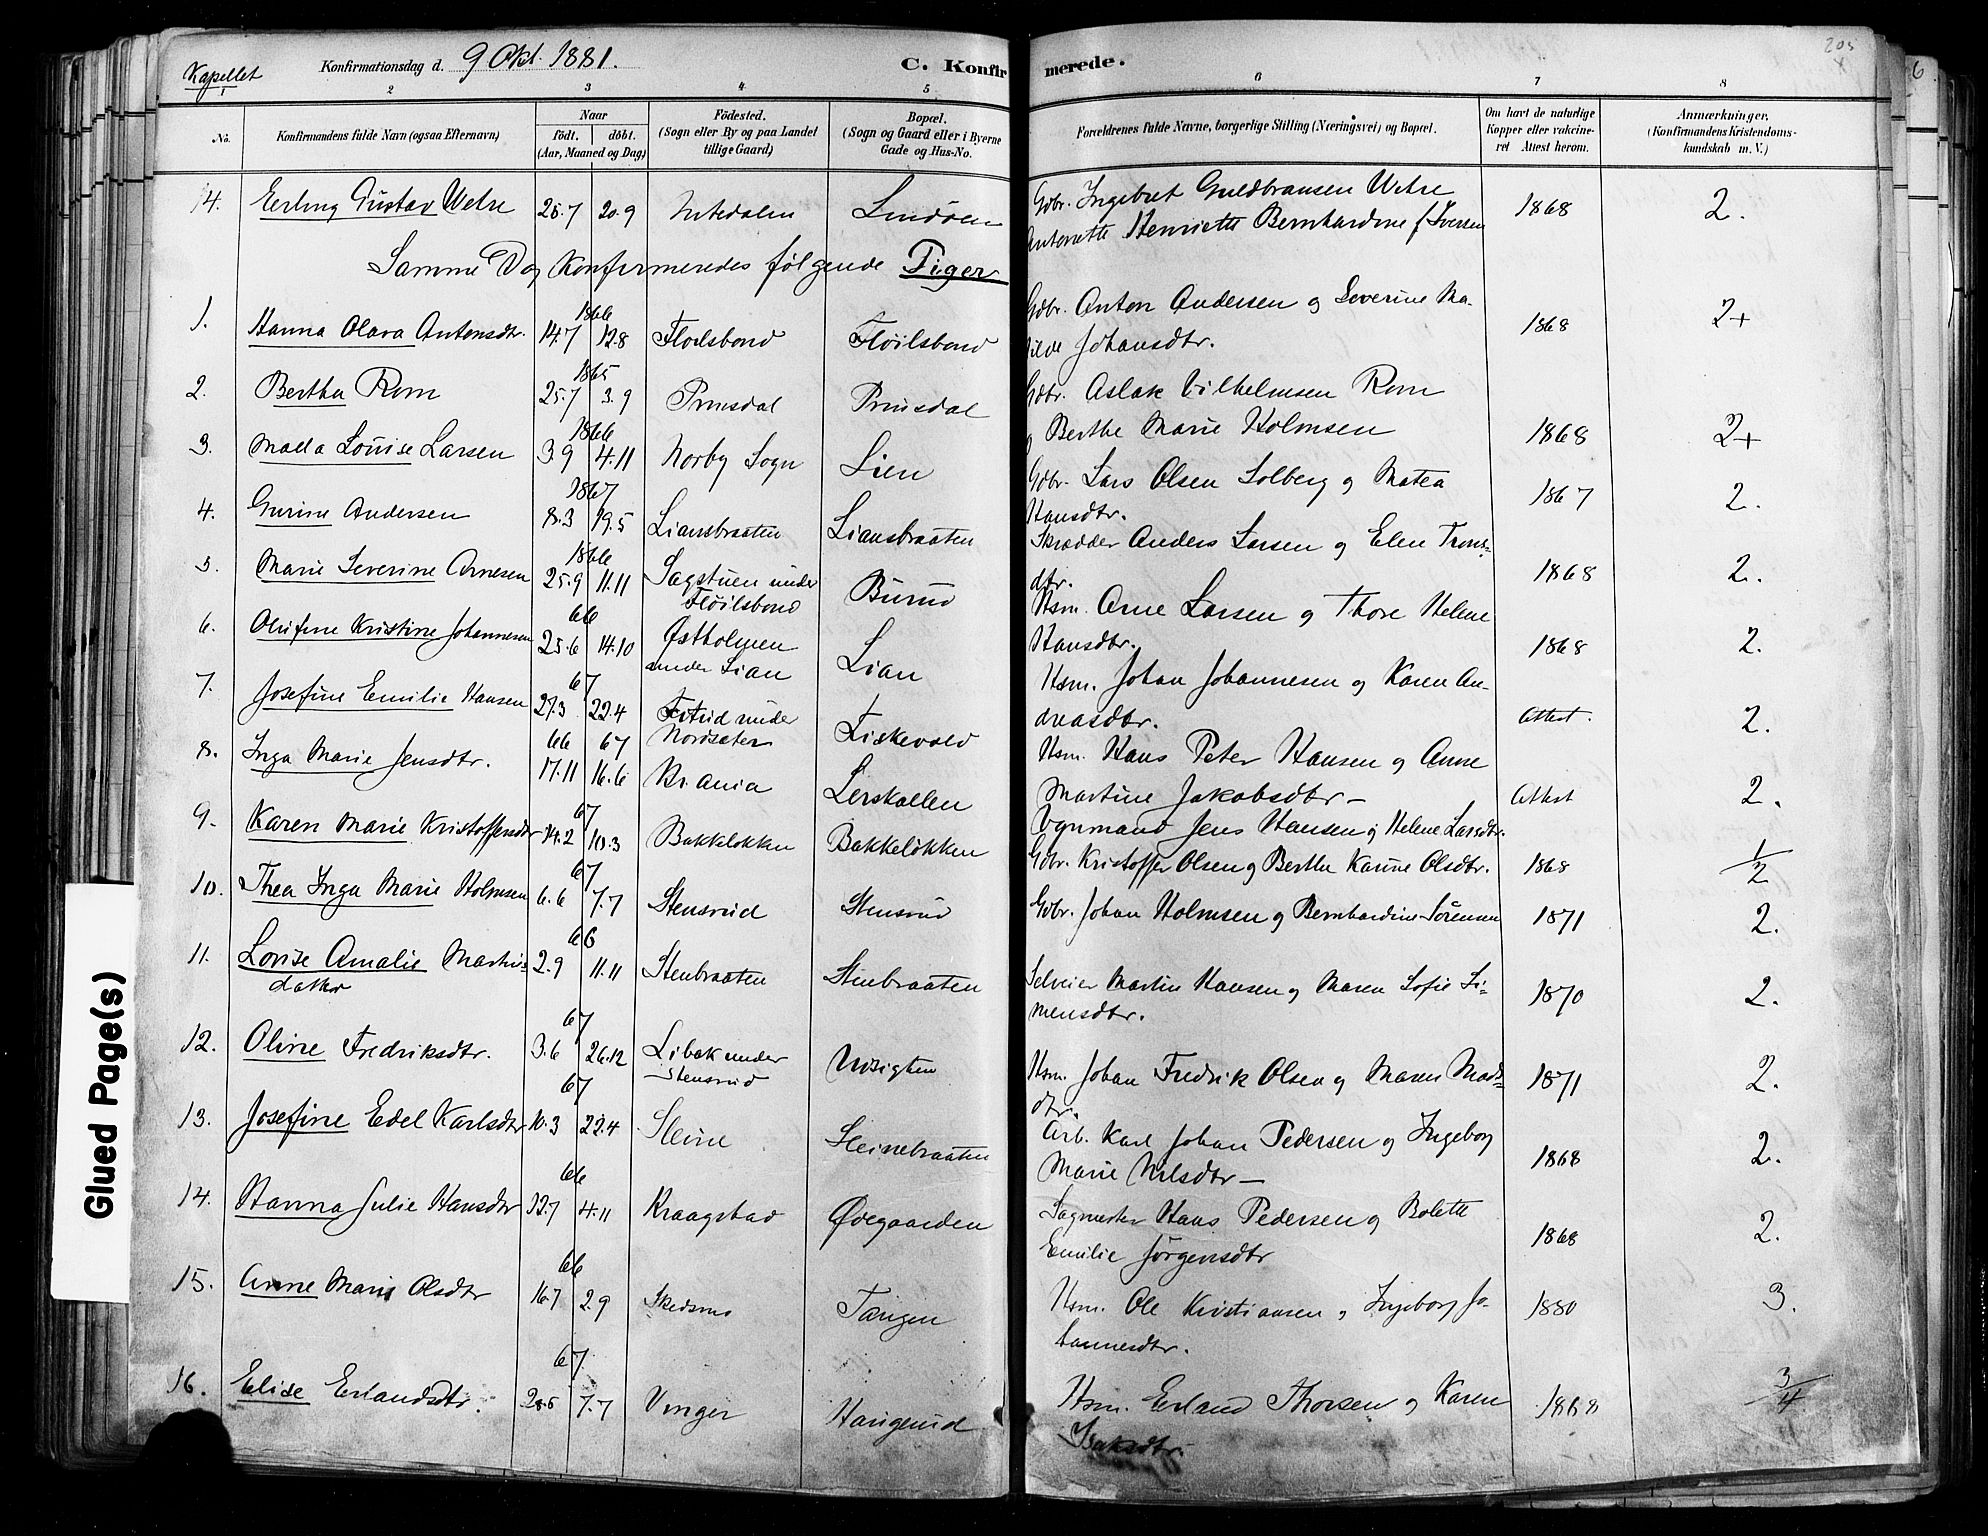 Kapellet
Konfirmationsdag d. 9 Okt. 1881.
C. Konfirmerede.
205
6
1 2 3 4 5 6 7 8
No. Konfirmandens fulde Navn (ogsaa Efternavn) Naar födt. döbt. (Aar, Maaned og Dag) Födested. (Sogn eller By og paa Landet tillige Gaard) Bopæl. (Sogn og Gaard eller i Byerne Gade og Hus-No. Forældrenes fulde Navne, borgerlige Stilling (Næringsvei) og Bopæl. Om havt de naturlige Kopper eller vakcineret Attest herom. Anmærkninger, (Konfirmandens Kristendomskundskab m. V.)
14. Erling Gustav Wetre 25.7 20.9 Lindøen Gbr. Ingebret Guldbransen Wetre 1868 2.
Antonette Henriette Bernhardine f Iversen
Samme Dag Konfirmeredes følgende Piger
1. Hanna Olava Antonsdtr. 1866 14.7 12.8 Fløilsbond Fløilsbond Gdbr. Anton Andersen og Severine Ma- 1868 2+
tilde Johansdtr.
2. Bertha Rom 1865 25.7 3.9 Prinsdal Prinsdal Gdbr. Aslak Vilhelmsen Rom
og Berthe Marie Holmsen 1868 2+
3. Malla Louise Larsen 1866 3.9 4.11 Norby Sogn Lien Gdbr. Lars Olsen Solberg og Matea 1867 2.
Hansdtr.
4. Gurine Andersen 1867 8.3 19.5 Liansbraaten Liansbraaten Skrædder Anders Larsen og Elen Trons- 1868 2.
dtr.
5. Marie Severine Arnesen 1866 25.9 11.11 Sagstuen under Fløilsbond Burud Hsm. Arne Larsen og Thore Helene
Hansdtr. 1868 2.
6. Olufine Kristine Johannesen 66 25.6 14.10 Østholmen under Lian Lian Hsm. Johan Johannesen og Karen An-
dreasdtr. Attest. 2.
7. Josefine Emilie Hansen 67 27.3 22.4 under Nordseter Fiskevold Hsm. Hans Peter Hansen og Anne
Martine Jakobsdtr - Attest 2.
8. Inga Marie Jensdtr. 66 67 17.11 16.6 Kr.ania Lerskallen Vognmand Jens Hansen og Helene Larsdtr.
9. Karen Marie Kristoffersdtr 67 14.2 10.3 Bakkeløkken Bakkeløkken Gdbr. Kristoffer Olsen og Berthe Karine Olsdtr. 1868 1/2
10. Thea Inga Marie Holmsen 67 6.6 7.7 Stensrud Stensrud Gdbr. Johan Holmsen og Bernhardine Sörensen 1871 2.
11. Lovise Amalie Martins 66 2.9 11.11 Stenbraaten Stenbraaten Selveier Martin Hansen og Maren Sofie Si- 1870 2.
datter mensdtr.
12. Oline Fredriksdtr. 67 3.6 26.12 Libak under Stensrud Udsigten Hsm. Johan Fredrik Olsen og Maren Mads- 1871 2.
dtr.
13. Josefine Edel Karlsdtr 67 10.3 22.4 Sleine Steinebraaten Arb. Karl Johan Pedersen og Ingeborg
Marie Nilsdtr - 1868 2.
14. Hanna Julie Hansdtr 66 12.7 4.11 Kraagstad Ødegaarden Sagmester Hans Pedersen og Bolette
Emilie Jørgensdtr 1868 2.
15. Anne Marie Olsdtr 66 16.7 2.9 Skedsmo Tangen Hsm. Ole Kristiansen og Ingeborg Jo- 1880 3.
hannesdtr.
16. Elise Erlandsdtr. 67 7.7 Vinger Haugerud Hsm. Erland Thorsen og Karen 1868 3/4
Isaksdtr.
Glued Page(s)